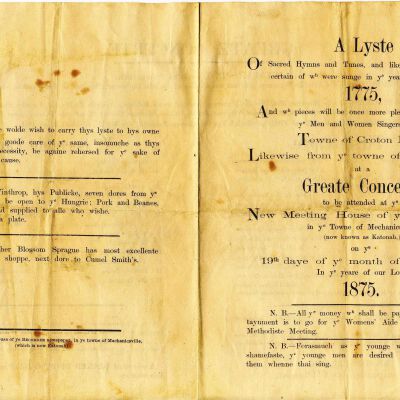 e wolde wish to carry thys lyste to hys owne
goode care of yᵉ same, insomuche as thys
cessity, be againe rehersed for yᵉ sake of
cause.
inthrop, hys Publicke, seven dores from yᵉ
be open to yᵉ Hungrie; Pork and Beanes,
d supplied to alle who wishe.
a plate.
her Blossom Sprague has most excellente
shoppe, next dore to Cumel Smith's.
use of yᵉ Recorder newspaper, in yᵉ towne of Mechanicsville,
(which is now Katonah.)
A Lyste
Of Sacred Hymns and Tunes, and like
certain of wʰ were sunge in yᵉ year
1775,
And wʰ pieces will be once more ple
yᵉ Men and Women Singers
Towne of Croton
Likewise from yᵉ towne of
at a
Greate Conce
to be attended at yᵉ
New Meeting House of y
in yᵉ Towne of Mechanic
(now known as Katonah
on yᵉ
19ᵗʰ daye of yᵉ month of
In yᵉ yeare of our Lo
1875.
N. B.—All yᵉ money wʰ shall be pa
taynment is to go for yᵉ Womens' Aide
Methodiste Meeting.
N. B.—Forasmuch as yᵉ younge w
shamefaste, yᵉ younge men are desired
them whenne thai sing.